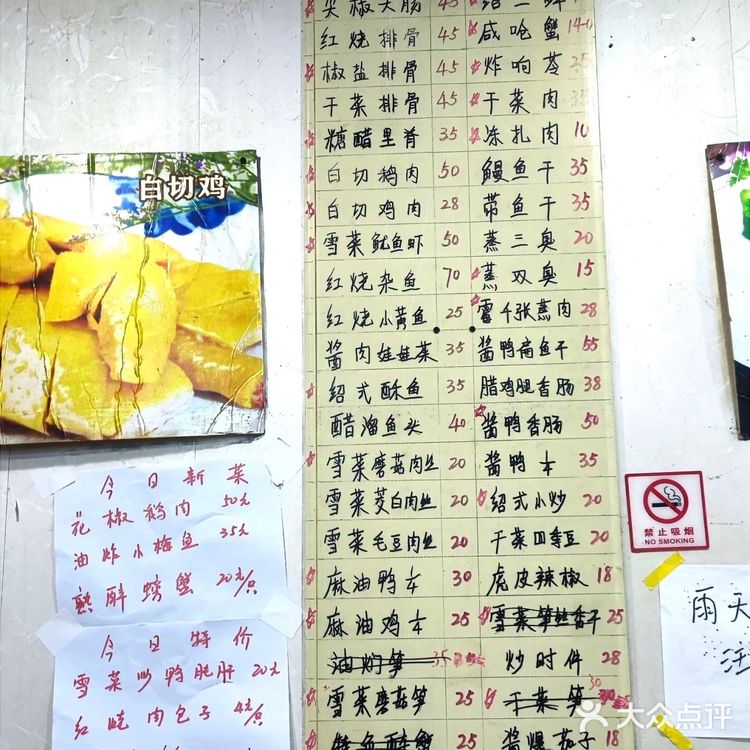 白切鸡
今日新菜
花椒鹅肉 50元
油炸小梅鱼 35元
熟醉螃蟹 20元/只
今日特价
雪菜炒鸭肫肝 20元
红烧肉包子 4元/只
尖椒大肠 45
红烧排骨 45
椒盐排骨 45
干菜排骨 45
糖醋里脊 35
白切鹅肉 50
白切鸡肉 28
雪菜鱿鱼虾 50
红烧杂鱼 70
红烧小黄鱼 25
酱肉娃娃菜 35
绍式酥鱼 35
醋溜鱼头 40
雪菜蘑菇肉丝 20
雪菜茭白肉丝 20
雪菜毛豆肉丝 20
麻油鸭本 30
麻油鸡本 25
油焖笋 35
雪菜蘑菇笋 25
特色醉蟹 25
绍三鲜
咸呛蟹 140
炸响苓 25
干菜肉 35
冻扎肉 10
鳗鱼干 35
带鱼干 35
蒸三臭 20
蒸双臭 15
雪千张蒸肉 28
酱鸭扁鱼干 55
腊鸡腿香肠 38
酱鸭香肠 50
酱鸭本 35
绍式小炒 20
干菜四季豆 20
虎皮辣椒 18
雪菜笋丝香干 25
炒时件 28
干菜笋 30
酱爆茄子 18
禁止吸烟
NO SMOKING
雨天
注
大众点评